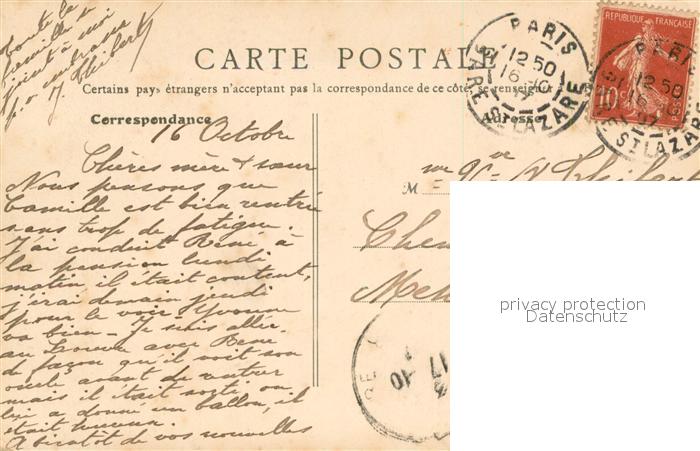 toute la
famille se
joint à moi
p. v. embrasser
J. Thibert
CARTE POSTALE
Certains pays étrangers n'acceptant pas la correspondance de ce côté, se renseigner à
Correspondance
Adresse
REPUBLIQUE FRANÇAISE
10
PARIS
12 50
16-10
GARE ST LAZARE
PARIS
12 50
16-10
GARE ST LAZARE
16 Octobre
Chères mère & sœur
Nous pensons que
Camille est bien rentrée
sans trop de fatigue.
J'ai conduit René à
la pension lundi
matin il était content,
j'irai demain jeudi
pour le voir Yvonne
va bien – Je suis allée
au Louvre avec René
de façon qu'il voit son
oncle avant de rentrer
mais il était sorti on
lui a donné un ballon, il
était heureux.
A bientôt de vos nouvelles
M
Chem
Men
17 10
privacy protection
Datenschutz